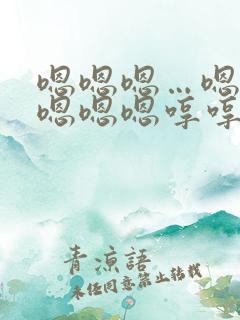 嗯嗯嗯…嗯
嗯嗯嗯哼哼
青凉語
未经同意禁止转载